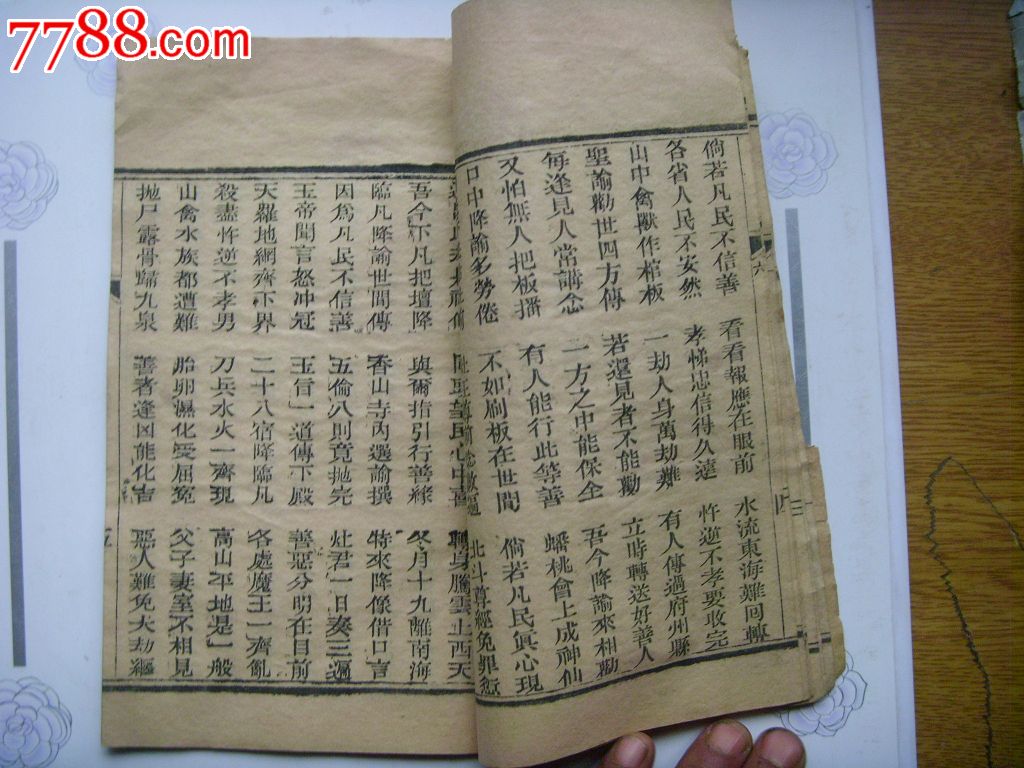 7788.com
倘若凡民不信善 看看報應在眼前 水流東海難回轉
各省人民不安然 孝悌忠信得久遠 忤逆不孝要收完
山中禽獸作棺板 一劫人身萬劫難 有人傳過府州縣
聖諭勸世四方傳 若還見者不能勸 立時轉送好善人
每逢見人常講念 一方之中能保全 吾今降諭來相勸
又怕無人把板播 有人能行此等善 蟠桃會上成神仙
口中降諭多勞倦 不如刷板在世間 倘若凡民眞心現
北斗尊經免罪愆
心中喜 轉身騰雲上西天
吾今下凡把壇降 與爾指引行善緣 冬月十九離南海
臨凡降諭世間傳 香山寺內選諭撰 特來降像借口言
因爲凡民不信善 五倫八則竟拋完 灶君一日奏三遍
玉帝聞言怒冲冠 玉旨一道傳下殿 善惡分明在目前
天羅地網齊下界 二十八宿降臨凡 各處魔王一齊亂
殺盡忤逆不孝男 刀兵水火一齊現 高山平地是一般
山禽水族都遭難 胎卵濕化受屈冤 父子妻室不相見
拋尸露骨歸九泉 善者逢凶能化吉 惡人難免大劫纏
五